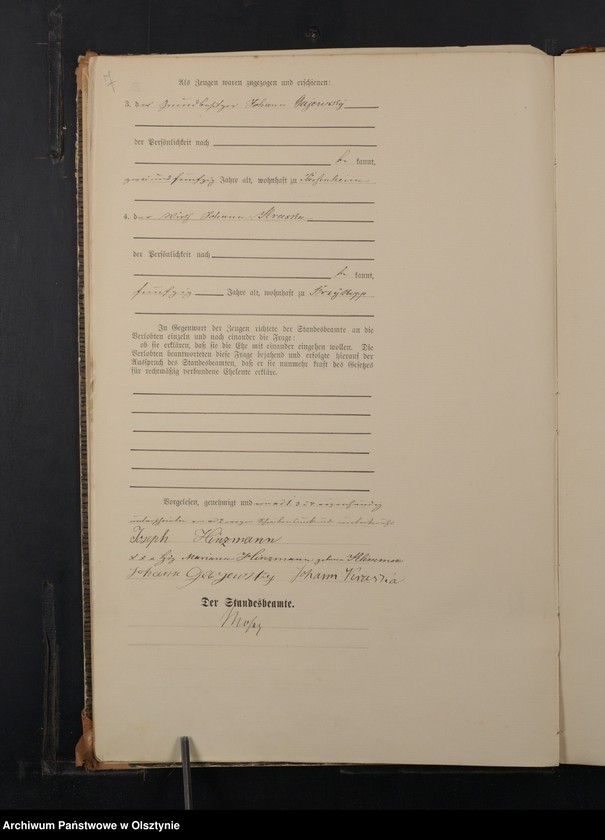 7
Als Zeugen waren zugezogen und erschienen:
3. der Grundbesitzer Johann Gajewsky
der Persönlichkeit nach
be kannt,
zwei und fünfzig Jahre alt, wohnhaft zu
4. der Wirth Johann
der Persönlichkeit nach
be kannt,
fünfzig Jahre alt, wohnhaft zu
In Gegenwart der Zeugen richtete der Standesbeamte an die
Verlobten einzeln und nach einander die Frage:
ob sie erklären, daß sie die Ehe mit einander eingehen wollen. Die
Verlobten beantworteten diese Frage bejahend und erfolgte hierauf der
Ausspruch des Standesbeamten, daß er sie nunmehr kraft des Gesetzes
für rechtmäßig verbundene Eheleute erkläre.
Vorgelesen, genehmigt und eigenhändig
unterschrieben
Joseph Hinzmann
xxx Hdz Marianna Hinzmann geborne
Johann Gajewsky Johann
Der Standesbeamte.
Archiwum Państwowe w Olsztynie